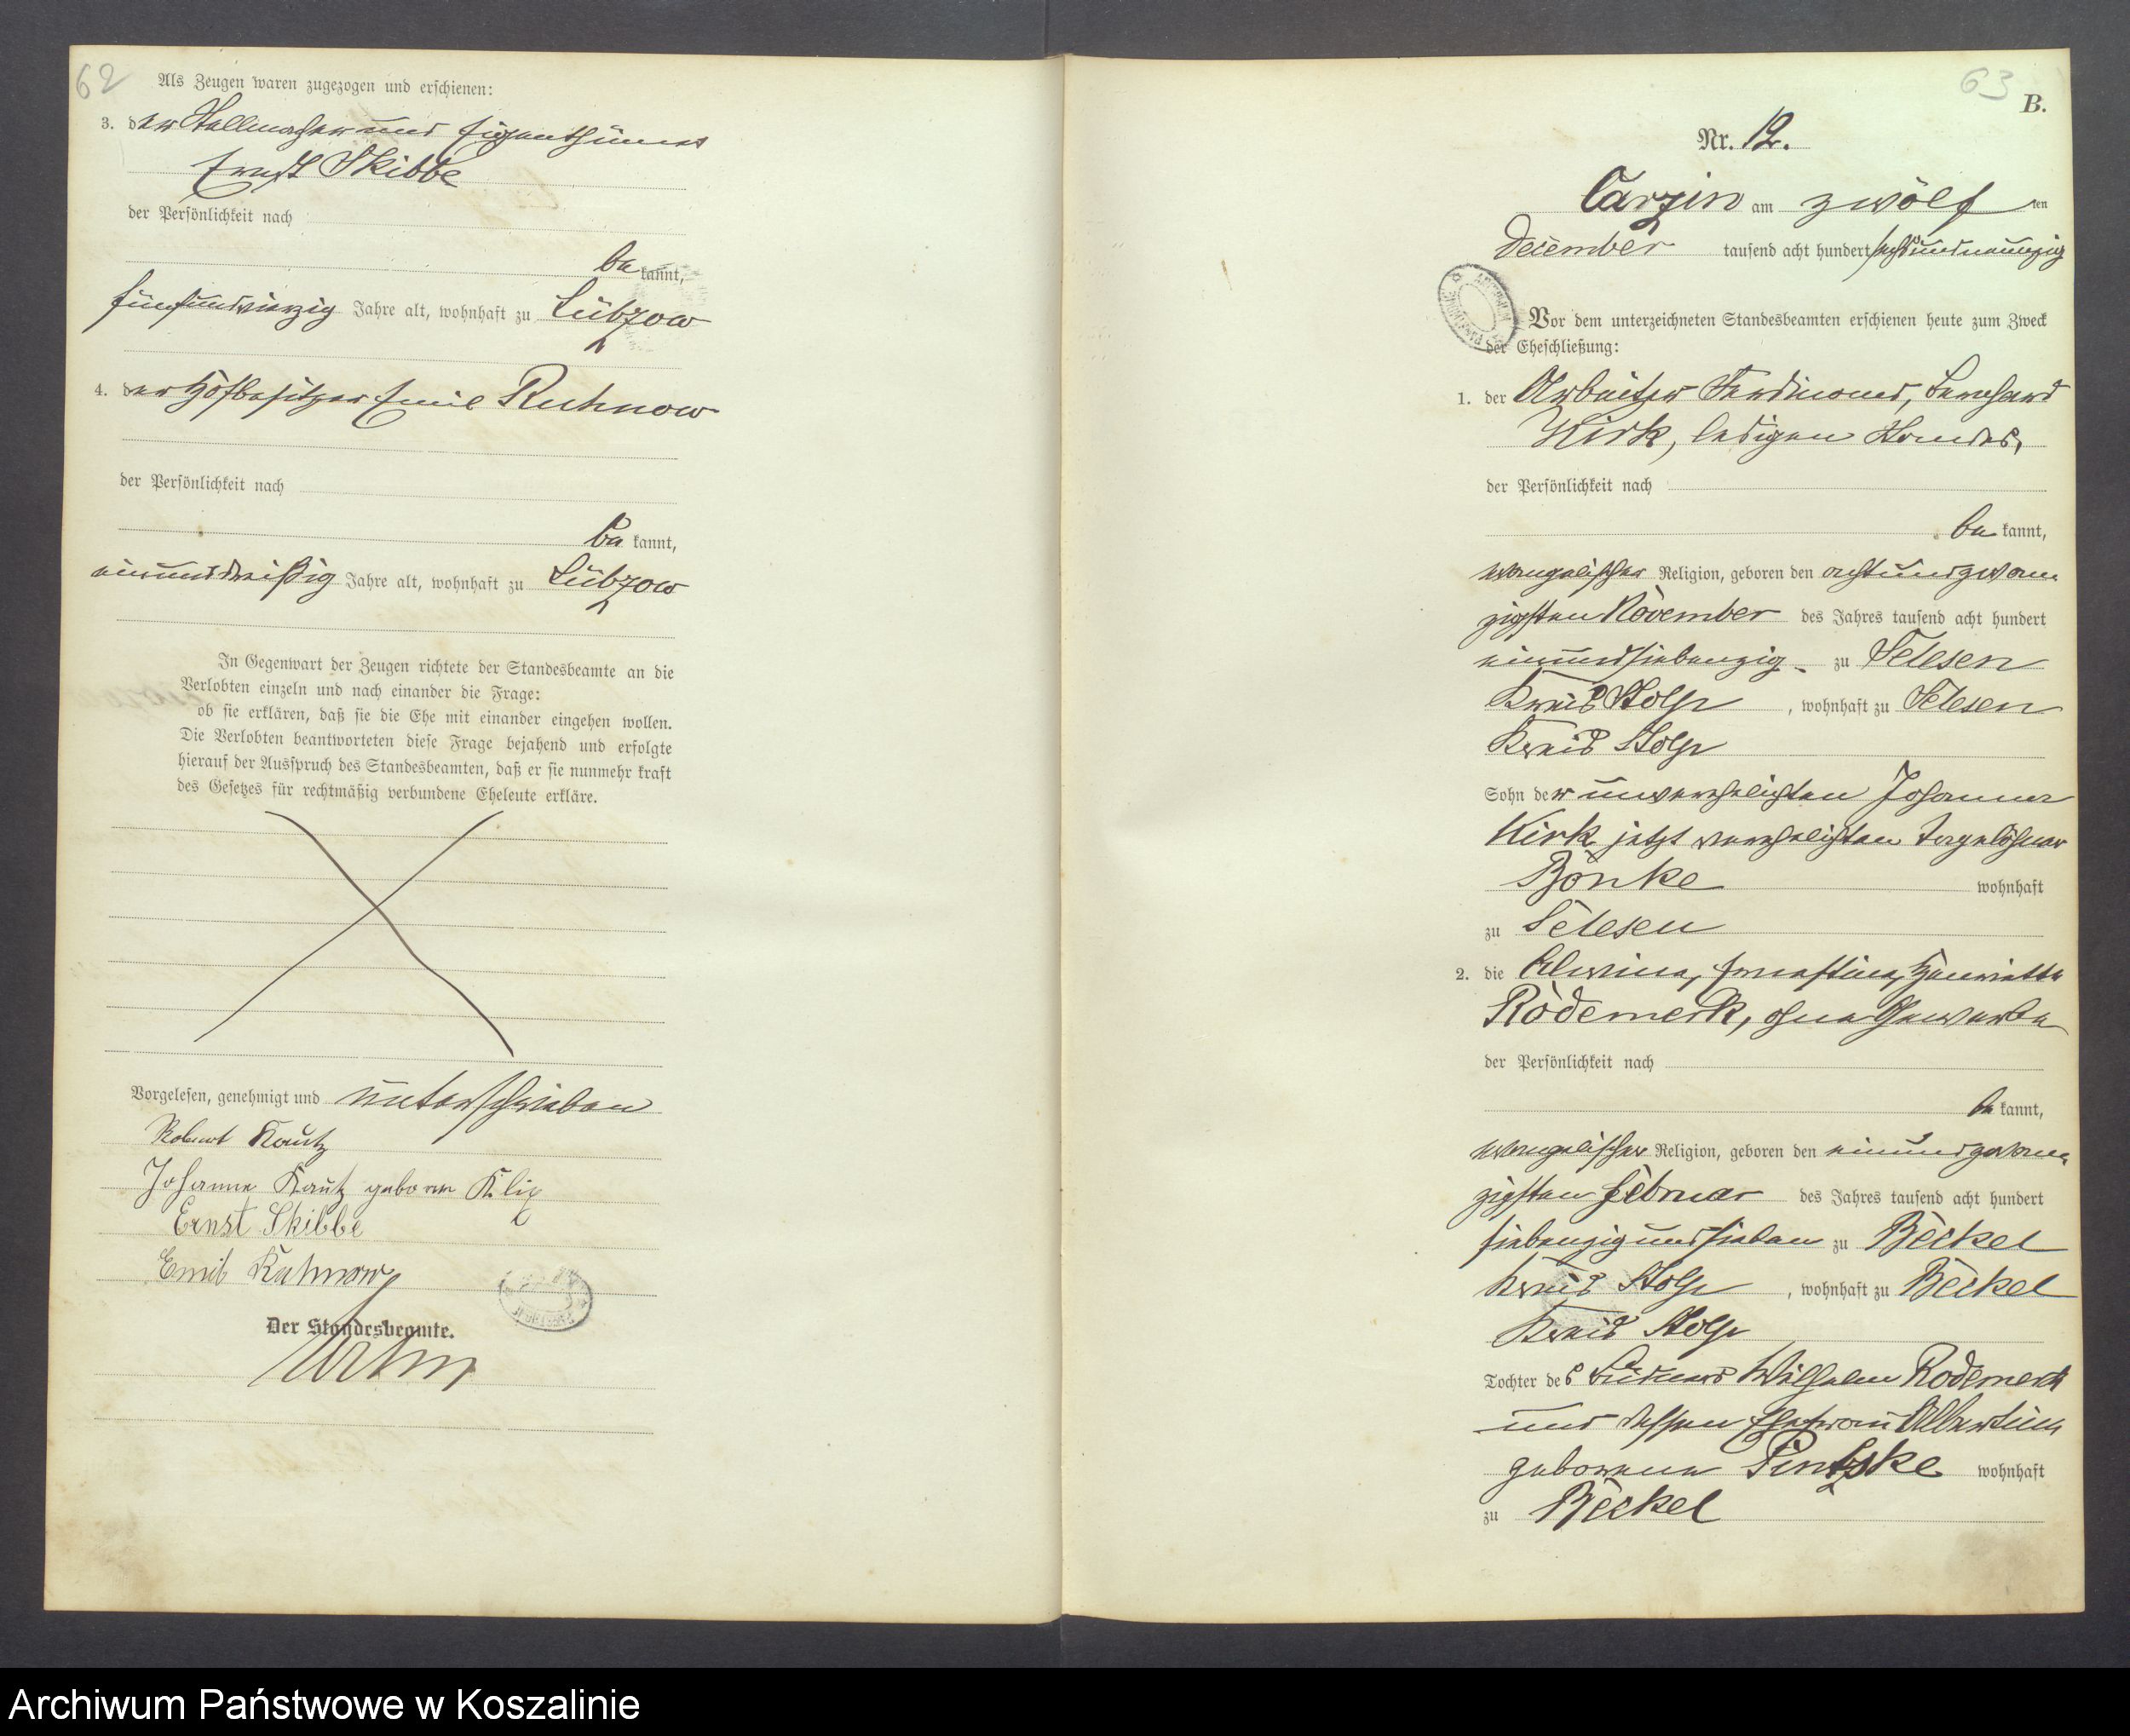 62
Als Zeugen waren zugezogen und erschienen:
3. der Stellmacher und Eigenthümer
Ernst Skibbe
der Persönlichkeit nach
be kannt,
fünfundvierzig Jahre alt, wohnhaft zu Lübzow
4. der Hofbesitzer Emil Ruhnow
der Persönlichkeit nach
be kannt,
einunddreißig Jahre alt, wohnhaft zu Lübzow
In Gegenwart der Zeugen richtete der Standesbeamte an die
Verlobten einzeln und nach einander die Frage:
ob sie erklären, daß sie die Ehe mit einander eingehen wollen.
Die Verlobten beantworteten diese Frage bejahend und erfolgte
hierauf der Ausspruch des Standesbeamten, daß er sie nunmehr kraft
des Gesetzes für rechtmäßig verbundene Eheleute erkläre.
Vorgelesen, genehmigt und unterschrieben
Robert Kautz
Johanne Kautz geboren Klix
Ernst Skibbe
Emil Ruhnow
Der Standesbeamte.
63
B.
Nr. 12.
Carzin am zwölf ten
December tausend acht hundert sechsundneunzig
Vor dem unterzeichneten Standesbeamten erschienen heute zum Zweck
der Eheschließung:
1. der Arbeiter Ferdinand, Bernhard
Kirk, ledigen Standes,
der Persönlichkeit nach
be kannt,
evangelischer Religion, geboren den achtundzwan
zigsten November des Jahres tausend acht hundert
einundsiebenzig zu Selesen
Kreis Stolp, wohnhaft zu Selesen
Kreis Stolp
Sohn der unverehelichten Johanna
Kirk jetzt verehelichten Tagelöhner
Bönke wohnhaft
zu Selesen
2. die Alwine, Ernestine, Henriette
Rodemerk, ohne Gewerbe
der Persönlichkeit nach
be kannt,
evangelischer Religion, geboren den einundzwan
zigsten Februar des Jahres tausend acht hundert
siebenzig und sieben zu Beckel
Kreis Stolp, wohnhaft zu Beckel
Kreis Stolp
Tochter des Büdners Wilhelm Rodemerk
und dessen Ehefrau Albertine
geborene Pintzke wohnhaft
zu Beckel
Archiwum Państwowe w Koszalinie